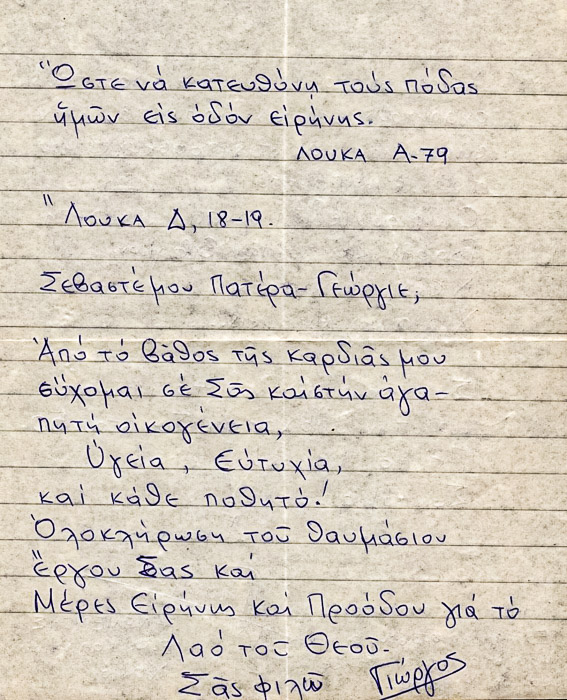 "Ὥστε νά κατευθύνη τούς πόδας
ἡμῶν εἰς ὁδόν εἰρήνης.
ΛΟΥΚΑ Α-79
" ΛΟΥΚΑ Δ, 18-19.
Σεβαστέμου Πατέρα-Γεώργιε,
Ἀπό τό βάθος τῆς καρδιᾶς μου
εὔχομαι σέ Σᾶς καί στήν ἀγα-
πητή οἰκογένεια,
Ὑγεία, Εὐτυχία,
καί κάθε ποθητό!
Ὁλοκλήρωση τοῦ θαυμάσιου
ἔργου Σας καί
Μέρες Εἰρήνης καί Προόδου γιά τό
Λαό τοῦ Θεοῦ.
Σᾶς φιλῶ Γιώργος